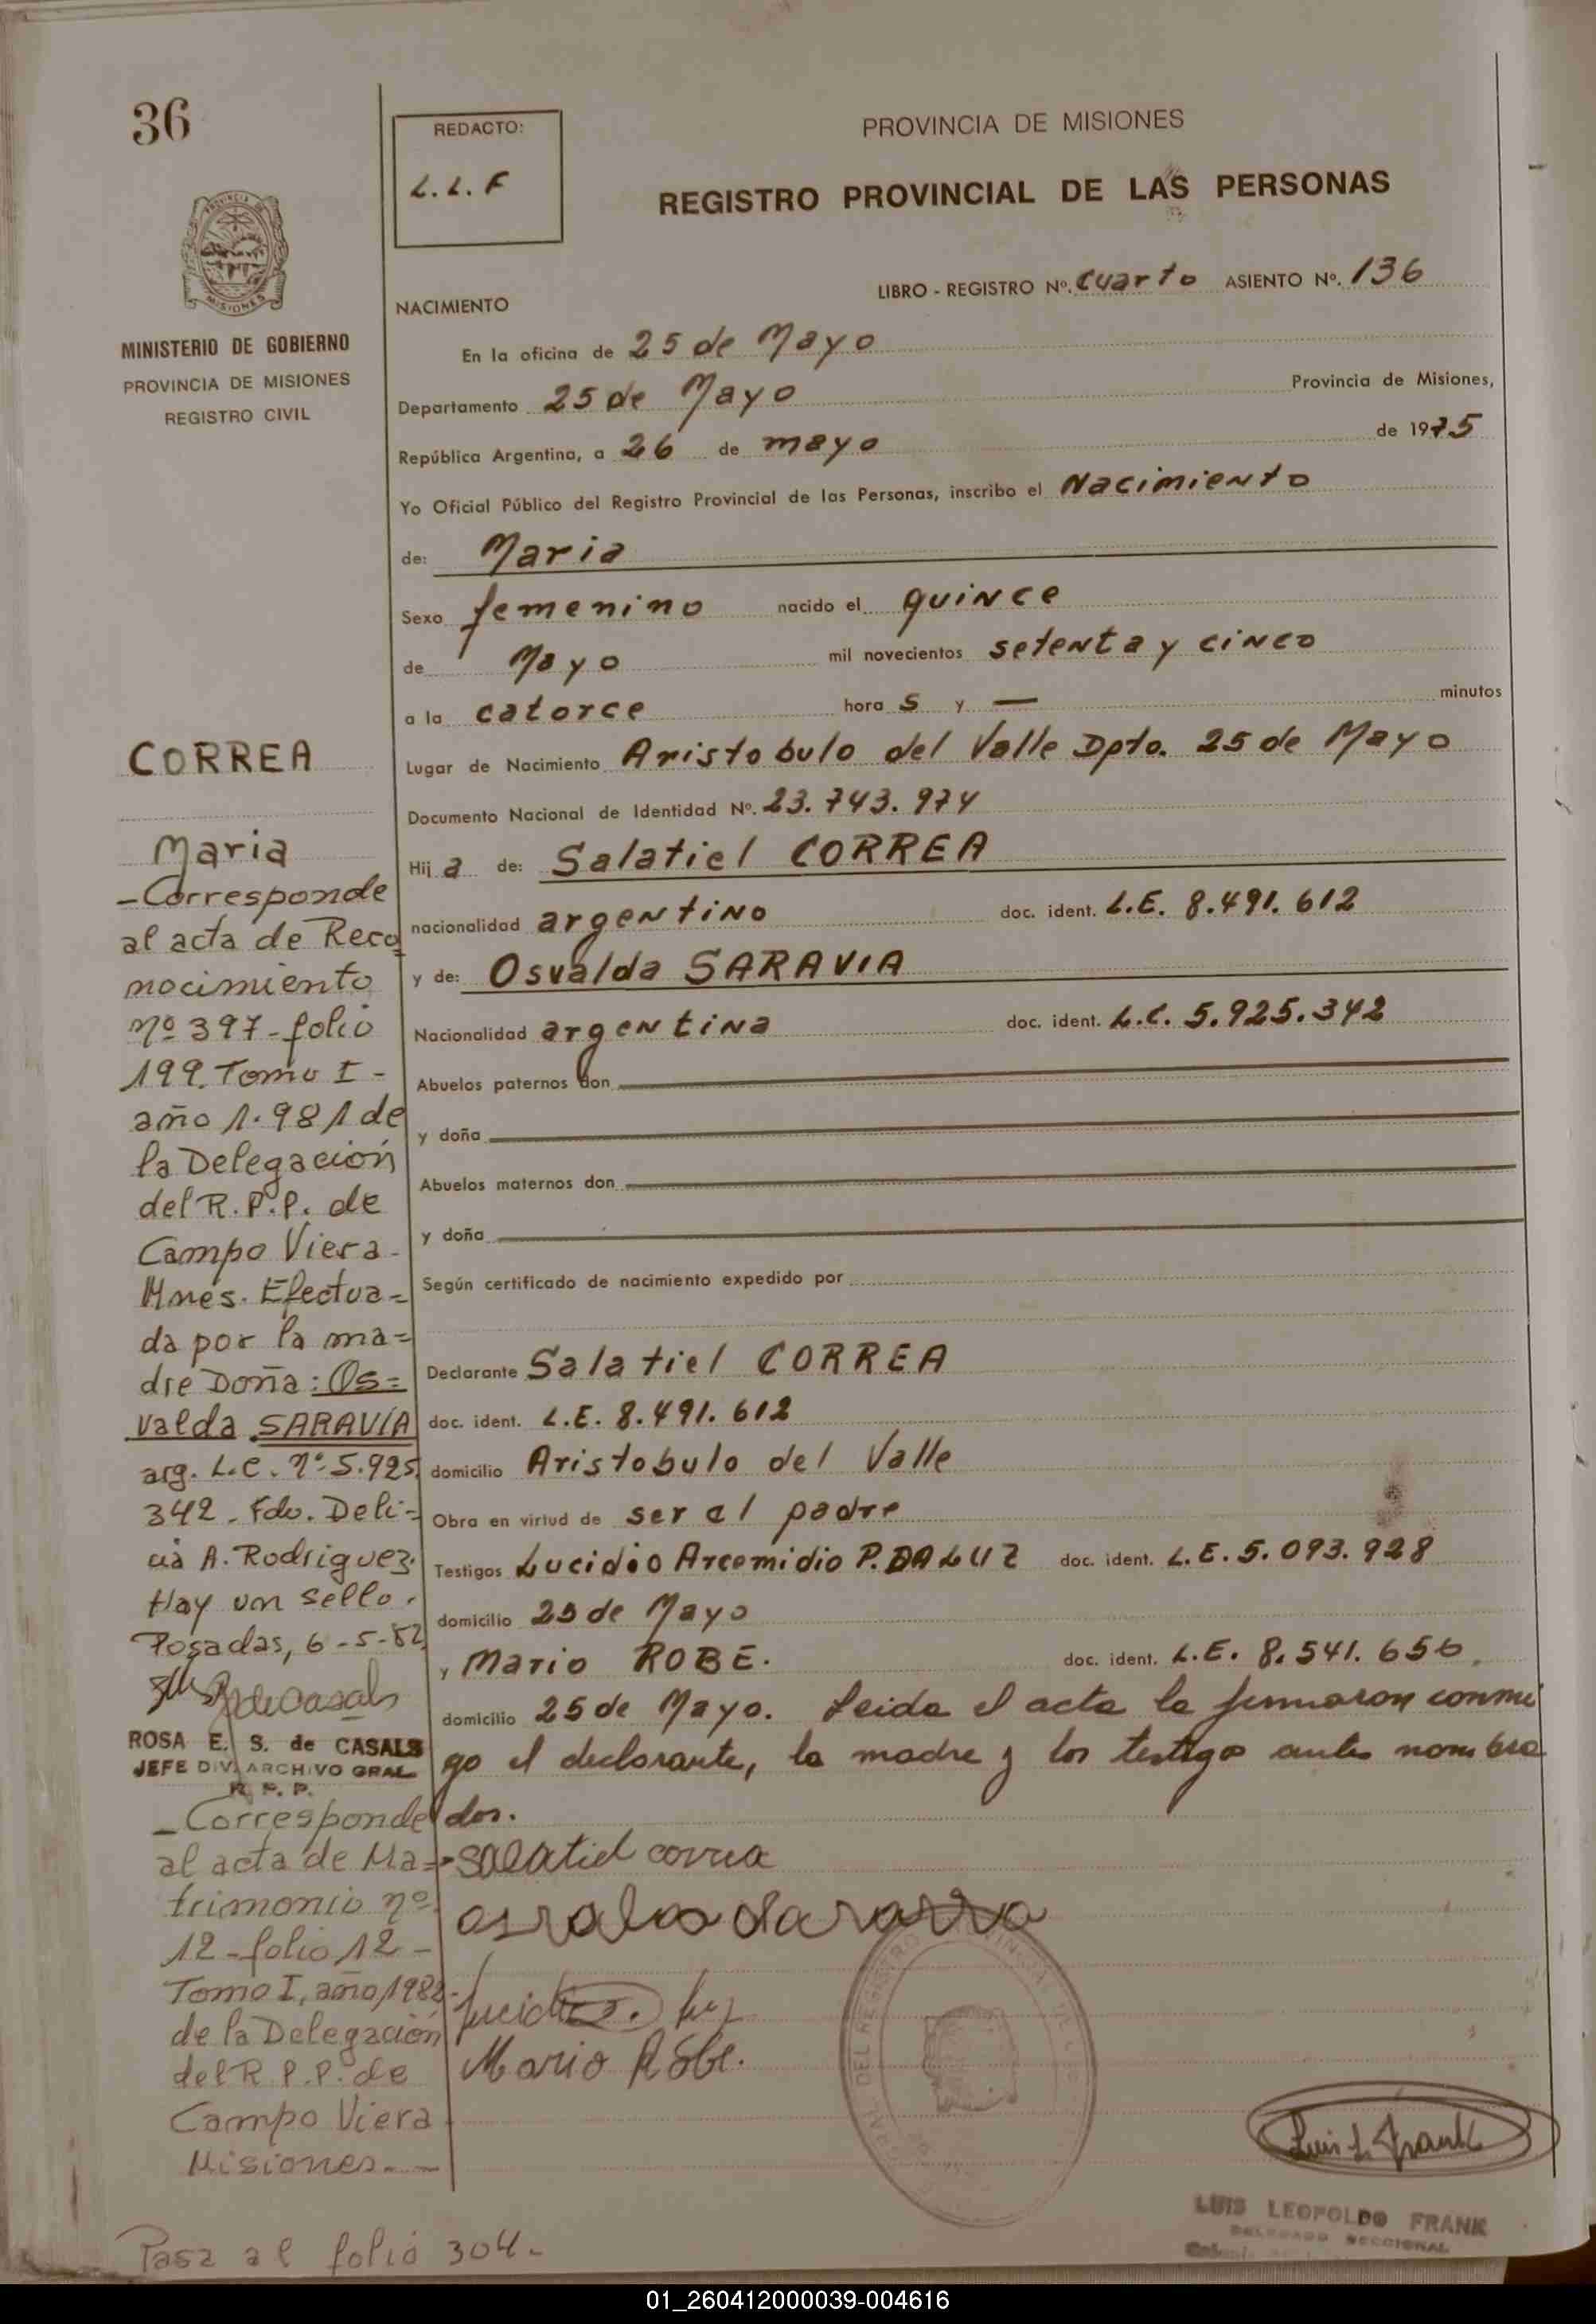 36
REDACTO:
L.L.F
PROVINCIA DE MISIONES
REGISTRO PROVINCIAL DE LAS PERSONAS
MISIONES
MINISTERIO DE GOBIERNO
PROVINCIA DE MISIONES
REGISTRO CIVIL
LIBRO - REGISTRO Nº. Cuarto ASIENTO Nº. 136
NACIMIENTO
En la oficina de 25 de Mayo
Departamento 25 de Mayo Provincia de Misiones,
República Argentina, a 26 de mayo de 1975
Yo Oficial Público del Registro Provincial de las Personas, inscribo el Nacimiento
de: Maria
Sexo femenino nacido el quince
de Mayo mil novecientos setenta y cinco
a la catorce hora s y — minutos
Lugar de Nacimiento Aristobulo del Valle Dpto. 25 de Mayo
Documento Nacional de Identidad Nº. 23.743.974
Hij a de: Salatiel CORREA
nacionalidad argentino doc. ident. L.E. 8.491.612
y de: Osvalda SARAVIA
Nacionalidad argentina doc. ident. L.C. 5.925.342
Abuelos paternos don
y doña
Abuelos maternos don
y doña
Según certificado de nacimiento expedido por
Declarante Salatiel CORREA
doc. ident. L.E. 8.491.612
domicilio Aristobulo del Valle
Obra en virtud de ser el padre
Testigos Lucidio Arcemidio P. DA LUZ doc. ident. L.E. 5.093.928
domicilio 25 de Mayo
y Mario ROBE. doc. ident. L.E. 8.541.656.
domicilio 25 de Mayo. Leida el acta la firmaron conmi
go el declarante, la madre y los testigos antes nombra
dos.
salatiel correa
osvalda saravia
Lucidio Luz
Mario Robe.
Luis L. Frank
LUIS LEOPOLDO FRANK
DELEGADO SECCIONAL
CORREA
Maria
- Corresponde
al acta de Reco
nocimiento
nº 397 - folio
199. Tomo I -
año 1.981 de
la Delegación
del R.P.P. de
Campo Viera -
Mnes. Efectua=
da por la ma=
dre Doña: Os=
valda SARAVIA
arg. L.C. nº 5.925.
342 - Fdo. Deli=
cia A. Rodriguez.
Hay un sello.
Posadas, 6-5-82
ROSA E. S. de CASALS
JEFE DIV. ARCHIVO GRAL
R. P. P.
- Corresponde
al acta de Ma=
trimonio nº
12 - folio 12 -
Tomo I, año 1982
de la Delegación
del R.P.P. de
Campo Viera
Misiones.-
Pasa al folio 304.-
01_260412000039-004616